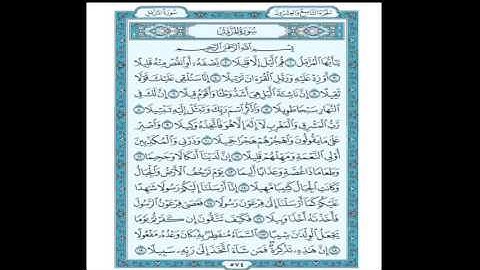 الجزء التاسع والعشرون سورة المزمل
سورة المزمل
بسم الله الرحمن الرحيم
يأيها المزمل قم اليل إلا قليلا نصفه أو انقص منه قليلا
أو زد عليه ورتل القرءان ترتيلا إنا سنلقى عليك قولا
ثقيلا إن ناشئة اليل هى أشد وطئا وأقوم قيلا إن لك فى
النهار سبحا طويلا واذكر اسم ربك وتبتل إليه تبتيلا
رب المشرق والمغرب لا إله إلا هو فاتخذه وكيلا واصبر
على ما يقولون واهجرهم هجرا جميلا وذرنى والمكذبين
أولى النعمة ومهلهم قليلا إن لدينا أنكالا وجحيما
وطعاما ذا غصة وعذابا أليما يوم ترجف الأرض والجبال
وكانت الجبال كثيبا مهيلا إنا أرسلنا إليكم رسولا شهدا
عليكم كما أرسلنا إلى فرعون رسولا فعصى فرعون الرسول
فأخذنه أخذا وبيلا فكيف تتقون إن كفرتم يوما
يجعل الولدن شيبا السماء منفطر به كان وعده مفعولا
إن هذه تذكرة فمن شاء اتخذ إلى ربه سبيلا
٥٧٤